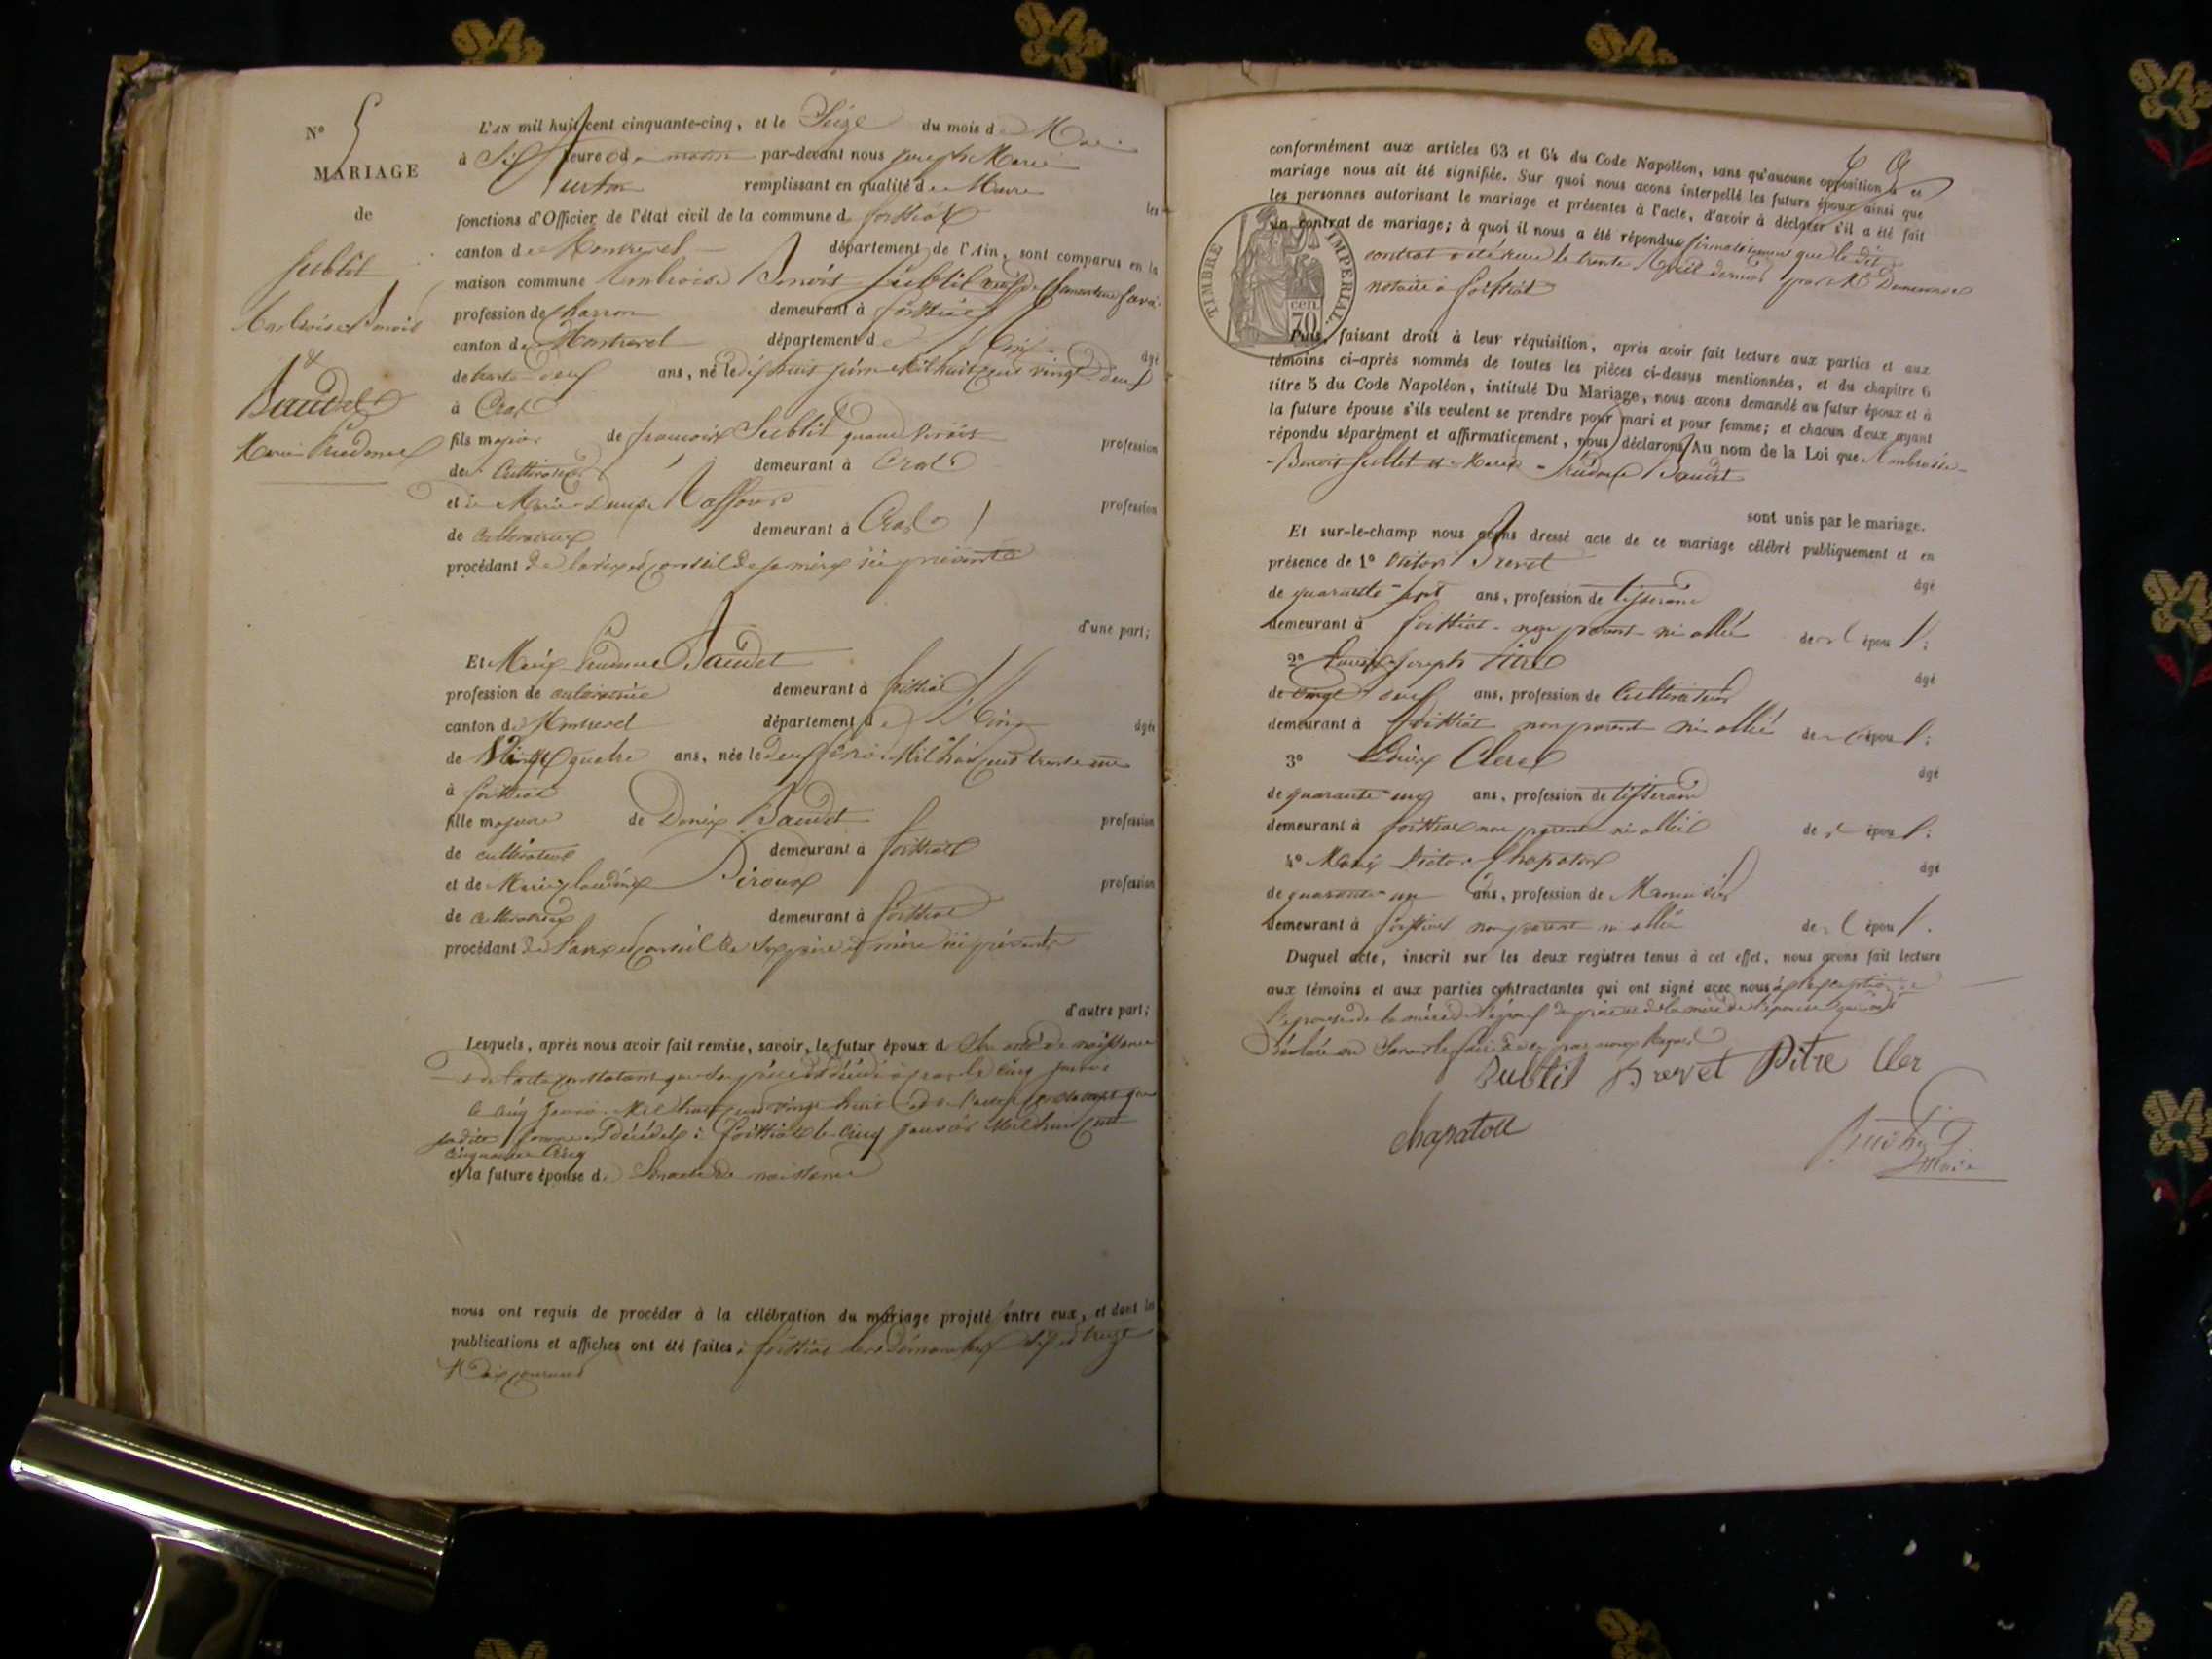 N° 5
MARIAGE
de
Sublit
Ambroise Benoit
&
Baudet
Marie Prudence
L'AN mil huit cent cinquante-cinq, et le Seize du mois de Mai
à Six heure du matin par-devant nous Joseph Marie
remplissant en qualité de Maire les
fonctions d'Officier de l'état civil de la commune de foissiat
canton de Montrevel département de l'Ain, sont comparus en la
maison commune Ambroise Benoit Sublit
profession de charron demeurant à foissiat
canton de Montrevel département de l'Ain âgé
de ans, né le dix huit juin mil huit cent vingt
à Cras
fils majeur de françois Sublit quand vivait profession
de Cultivateur demeurant à Cras
et de Marie Denise profession
de cultivatrice demeurant à Cras
procédant de l'avis et conseil de sa mère ici présente
d'une part;
Et Marie Prudence Baudet
profession de cultivatrice demeurant à foissiat
canton de Montrevel département de l'Ain âgée
de Vingt quatre ans, née le Mil huit cent trente un
à foissiat
fille majeure de Denis Baudet profession
de cultivateur demeurant à foissiat
et de Marie Claudine Piroux profession
de cultivatrice demeurant à foissiat
procédant de l'avis et conseil de ses père et mère ici présents
d'autre part;
Lesquels, après nous avoir fait remise, savoir, le futur époux de Son acte de naissance
et de l'acte constatant que son père est décédé à Cras le cinq janvier
le cinq Janvier Mil huit cent vingt huit et de l'acte constatant que
sa dite femme est décédée à foissiat le cinq janvier Mil huit cent
cinquante cinq
et la future épouse de Son acte de naissance
nous ont requis de procéder à la célébration du mariage projeté entre eux, et dont les
publications et affiches ont été faites à foissiat les dimanches six et treize
Mai courant
conformément aux articles 63 et 64 du Code Napoléon, sans qu'aucune opposition à ce
mariage nous ait été signifiée. Sur quoi nous avons interpellé les futurs époux ainsi que
les personnes autorisant le mariage et présentes à l'acte, d'avoir à déclarer s'il a été fait
un contrat de mariage; à quoi il nous a été répondu affirmativement que le dit
contrat a été reçu le trente Avril dernier par Me
notaire à foissiat
TIMBRE IMPERIAL.
70 cen
Puis, faisant droit à leur réquisition, après avoir fait lecture aux parties et aux
témoins ci-après nommés de toutes les pièces ci-dessus mentionnées, et du chapitre 6
titre 5 du Code Napoléon, intitulé Du Mariage, nous avons demandé au futur époux et à
la future épouse s'ils veulent se prendre pour mari et pour femme; et chacun d'eux ayant
répondu séparément et affirmativement, nous déclarons Au nom de la Loi que Ambroise
Benoit Sublit et Marie Prudence Baudet
sont unis par le mariage.
Et sur-le-champ nous avons dressé acte de ce mariage célébré publiquement et en
présence de 1° Victor Brevet âgé
de quarante-sept ans, profession de tisserand
demeurant à foissiat non parent ni allié de l'épou
2° Joseph Pitre âgé
de vingt neuf ans, profession de Cultivateur
demeurant à foissiat non parent ni allié de l'épou
3° Clerc âgé
de quarante cinq ans, profession de tisserand
demeurant à foissiat non parent ni allié de l'épou
4° Marie Victor Chapaton âgé
de quarante un ans, profession de Menuisier
demeurant à foissiat non parent ni allié de l'épou
Duquel acte, inscrit sur les deux registres tenus à cet effet, nous avons fait lecture
aux témoins et aux parties contractantes qui ont signé avec nous à l'exception de
l'épouse de la mère de l'époux du père et de la mère de l'épouse qui ont
Déclaré ne Savoir le faire de ce par nous Requis
Sublit Brevet Pitre Cler
Chapaton
Maire